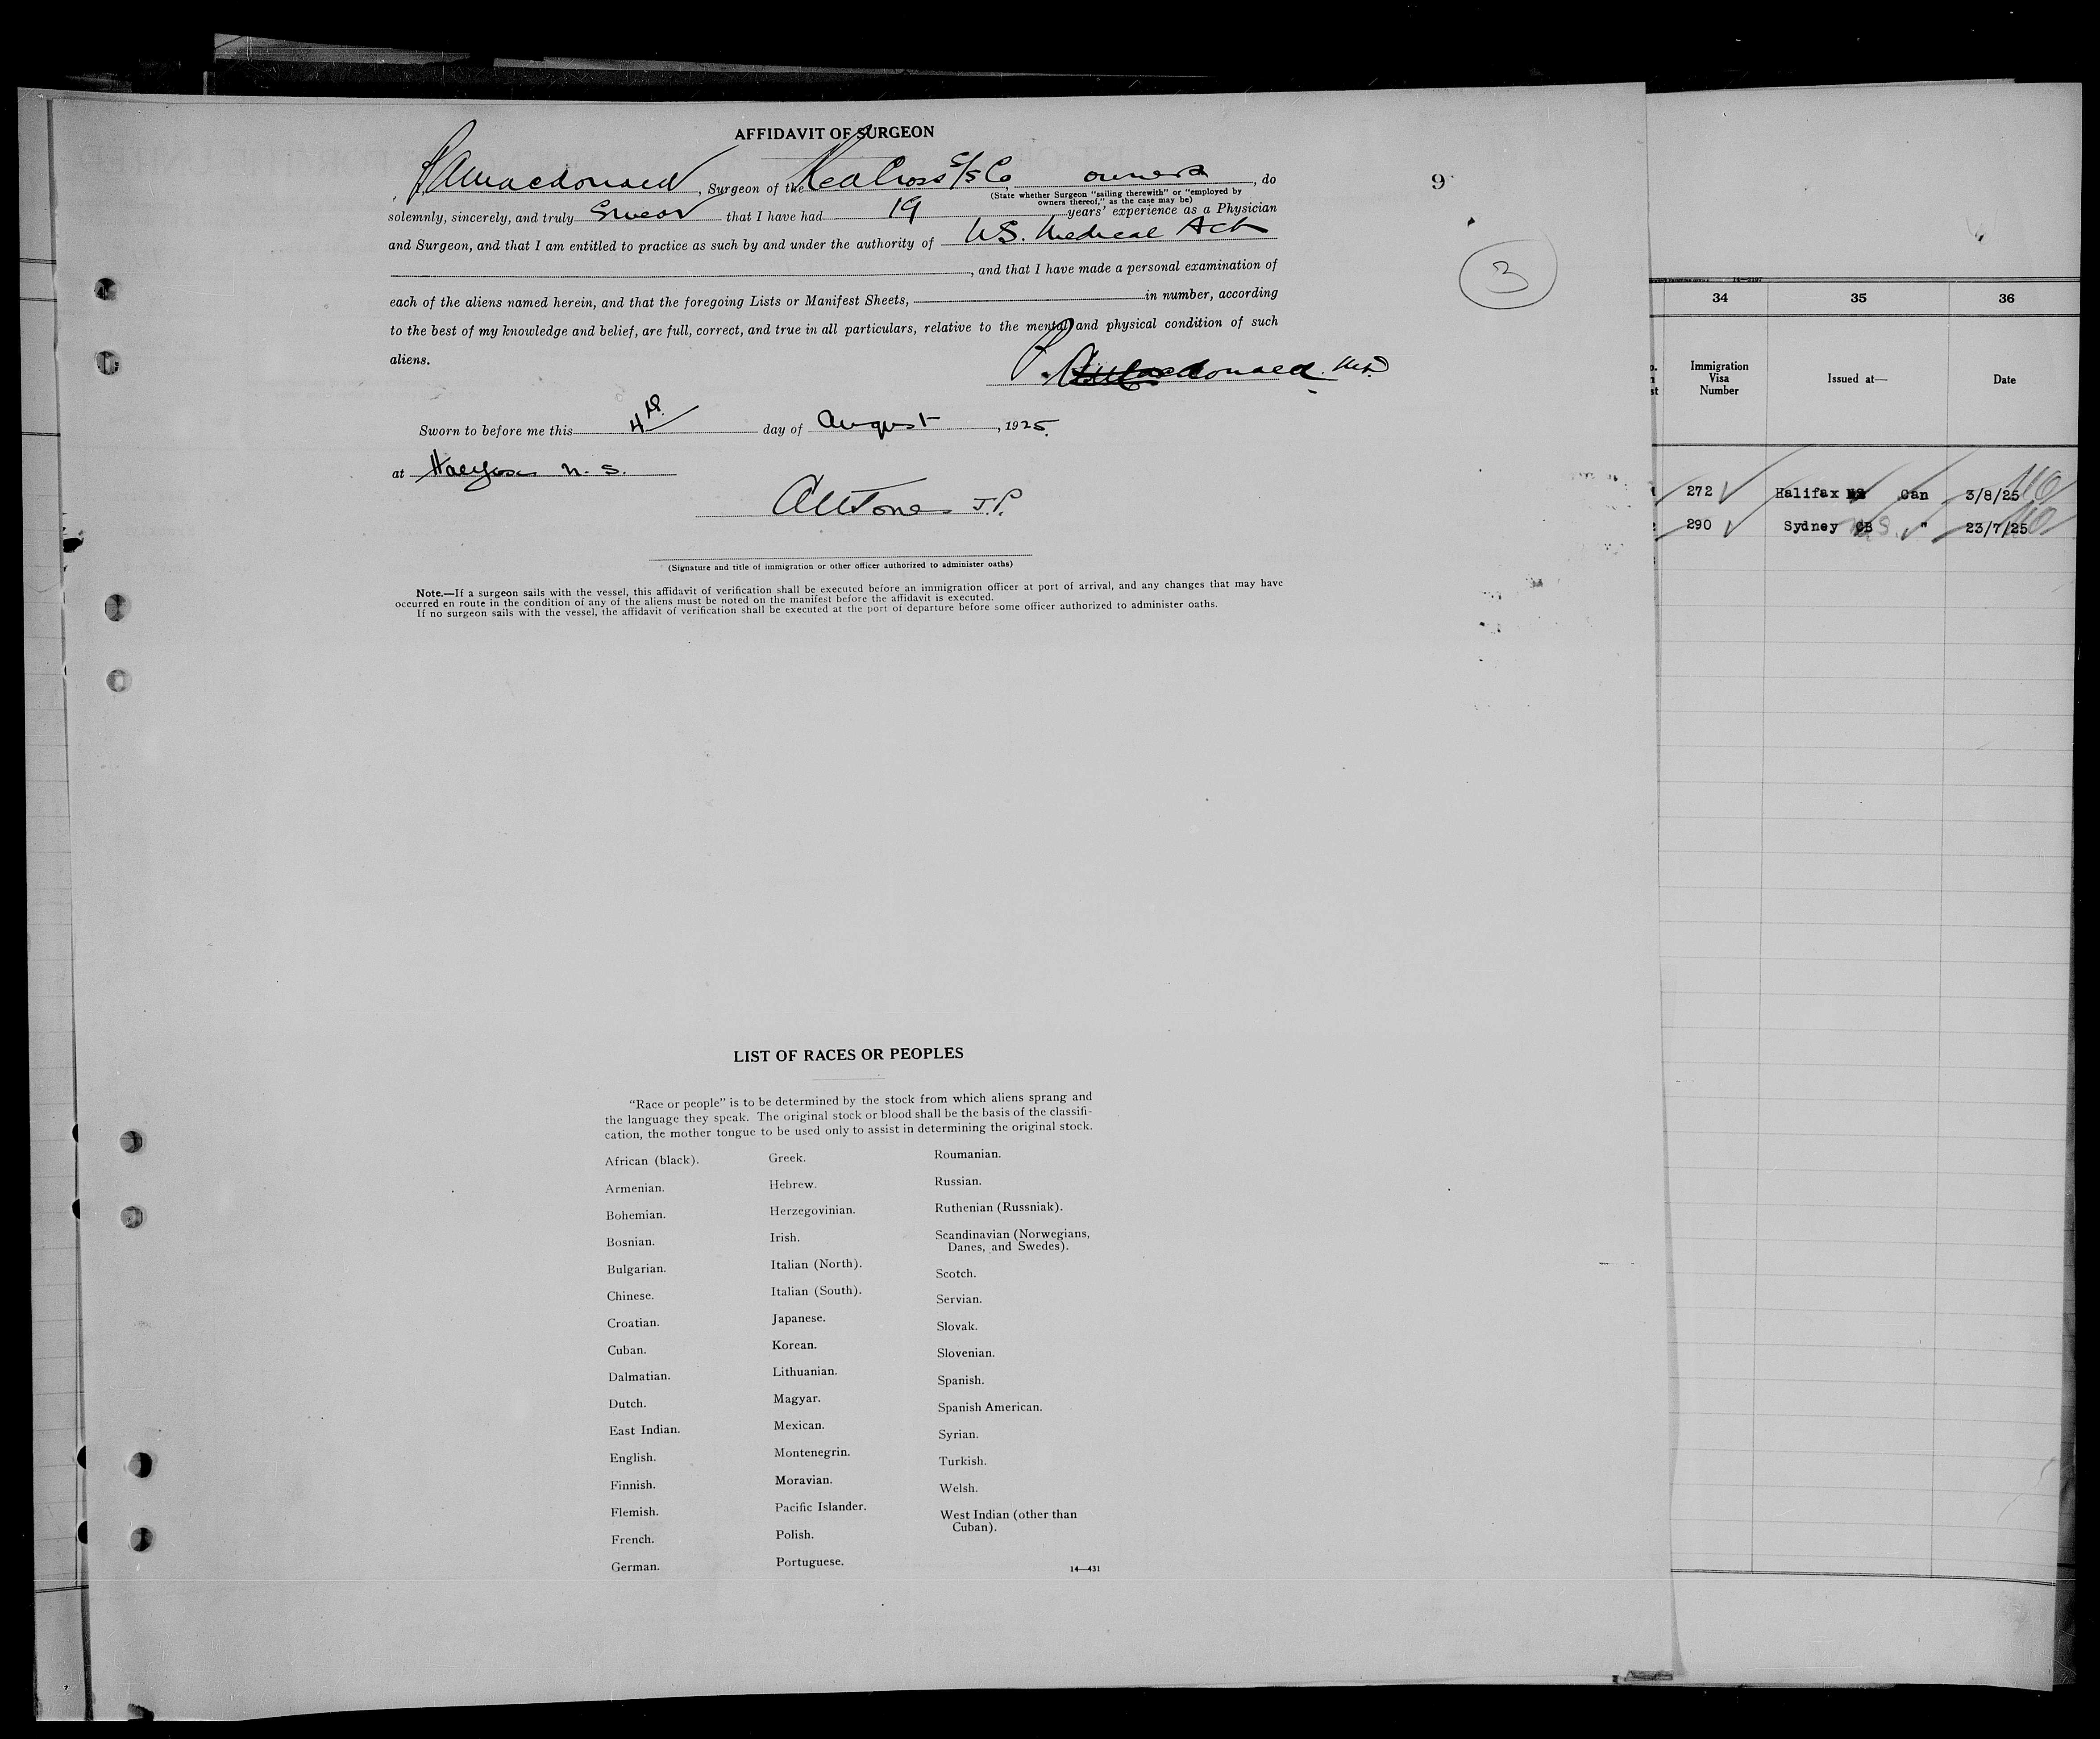 AFFIDAVIT OF SURGEON
Macdonald, Surgeon of the Red Cross S/S Co owners, do
(State whether Surgeon "sailing therewith" or "employed by
owners thereof," as the case may be)
solemnly, sincerely, and truly Swear that I have had 19 years' experience as a Physician
and Surgeon, and that I am entitled to practice as such by and under the authority of N.S. Medical Act
, and that I have made a personal examination of
each of the aliens named herein, and that the foregoing Lists or Manifest Sheets, in number, according
to the best of my knowledge and belief, are full, correct, and true in all particulars, relative to the mental and physical condition of such
aliens.
Macdonald. M.D.
Sworn to before me this 4th day of August, 1925.
at Halifax N. S.
Jones J.P.
(Signature and title of immigration or other officer authorized to administer oaths)
Note.—If a surgeon sails with the vessel, this affidavit of verification shall be executed before an immigration officer at port of arrival, and any changes that may have
occurred en route in the condition of any of the aliens must be noted on the manifest before the affidavit is executed.
If no surgeon sails with the vessel, the affidavit of verification shall be executed at the port of departure before some officer authorized to administer oaths.
9
3
LIST OF RACES OR PEOPLES
"Race or people" is to be determined by the stock from which aliens sprang and
the language they speak. The original stock or blood shall be the basis of the classifi-
cation, the mother tongue to be used only to assist in determining the original stock.
African (black).
Armenian.
Bohemian.
Bosnian.
Bulgarian.
Chinese.
Croatian.
Cuban.
Dalmatian.
Dutch.
East Indian.
English.
Finnish.
Flemish.
French.
German.
Greek.
Hebrew.
Herzegovinian.
Irish.
Italian (North).
Italian (South).
Japanese.
Korean.
Lithuanian.
Magyar.
Mexican.
Montenegrin.
Moravian.
Pacific Islander.
Polish.
Portuguese.
Roumanian.
Russian.
Ruthenian (Russniak).
Scandinavian (Norwegians,
Danes, and Swedes).
Scotch.
Servian.
Slovak.
Slovenian.
Spanish.
Spanish American.
Syrian.
Turkish.
Welsh.
West Indian (other than
Cuban).
14—431
34 35 36
Immigration
Visa
Number
Issued at—
Date
272 Halifax NS Can 3/8/25
290 Sydney CB N.S. " 23/7/25